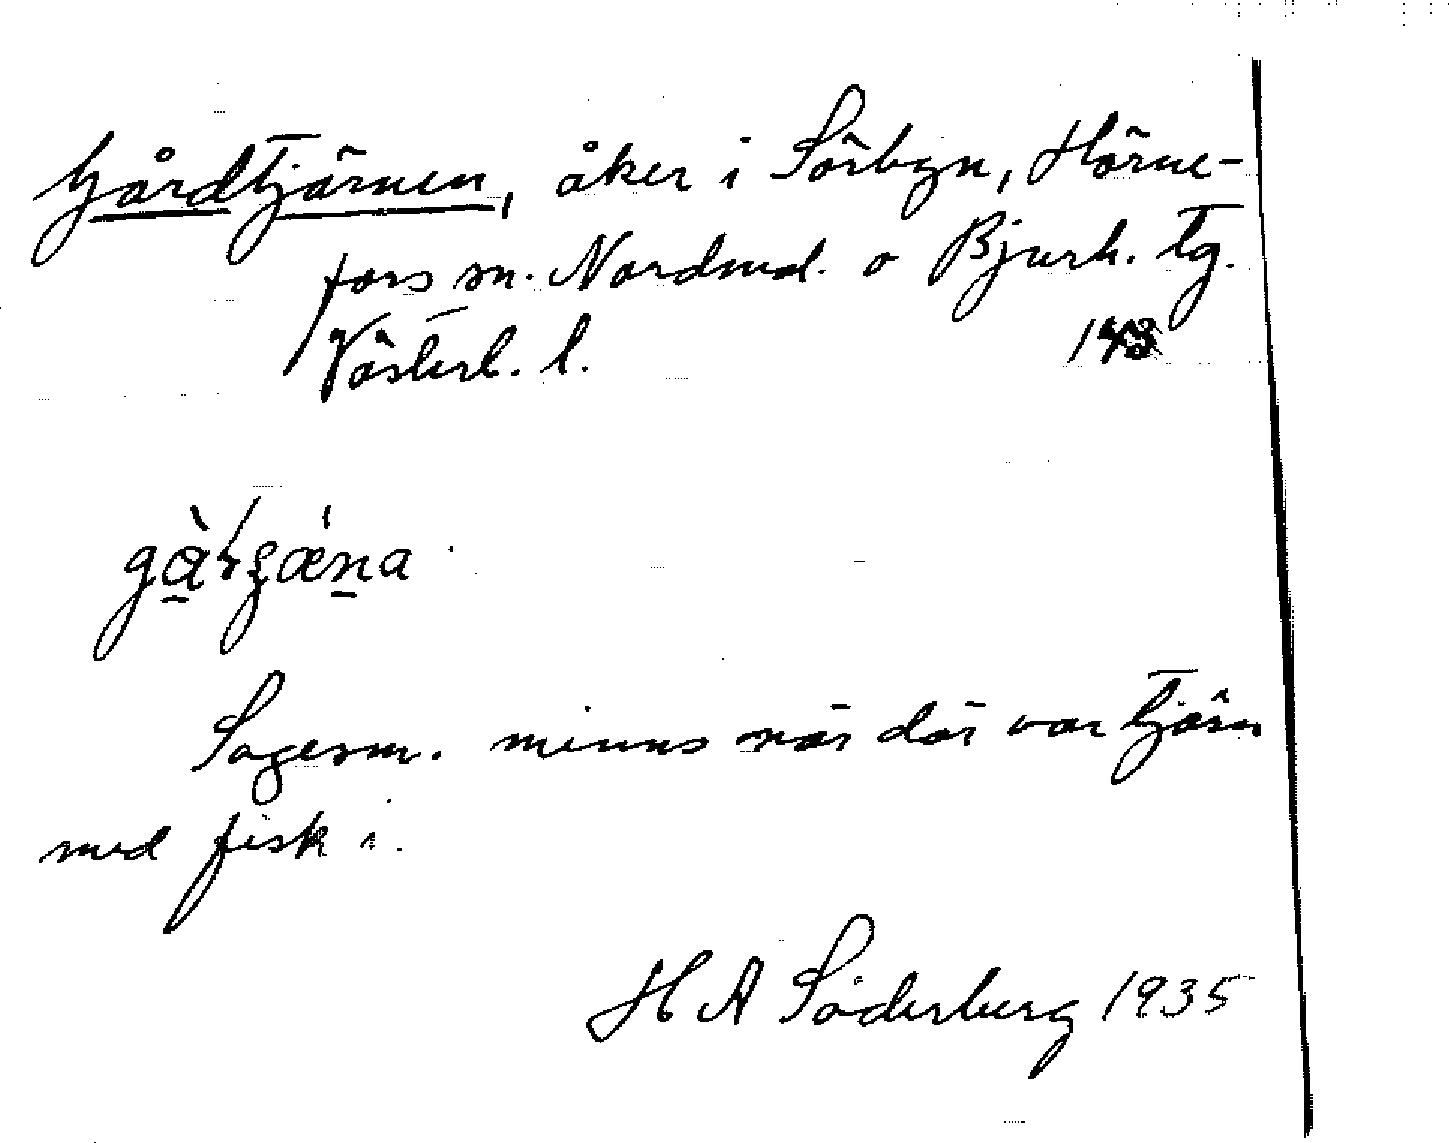 Gårdtjärnen, åker i Sörbyn, Hörne-
fors sn. Nordmal. o Bjurh. tg.
Västerb. l.
Sagesm. minns när där var tjärn
med fisk i.
H A Söderberg 1935